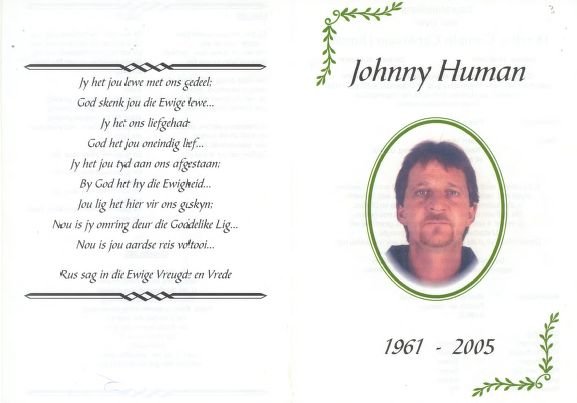 Jy het jou lewe met ons gedeel;
God skenk jou die Ewige lewe...
Jy het ons liefgehad
God het jou oneindig lief...
Jy het jou tyd aan ons afgestaan;
By God het hy die Ewigheid...
Jou lig het hier vir ons geskyn;
Nou is jy omring deur die Goddelike Lig...
Nou is jou aardse reis voltooi...
Rus sag in die Ewige Vreugde en Vrede
3
Johnny Human
1961 - 2005